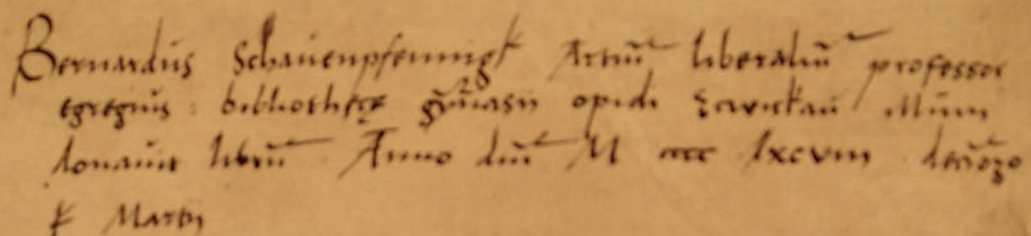 Bernardus Schauenpfennigk Artiū liberaliū professor
egregius : bibliothecę gȳmnasii opidi Czwickaū illum
donauit librū Anno dnī M cccc lxcviii decīo
k Marcij